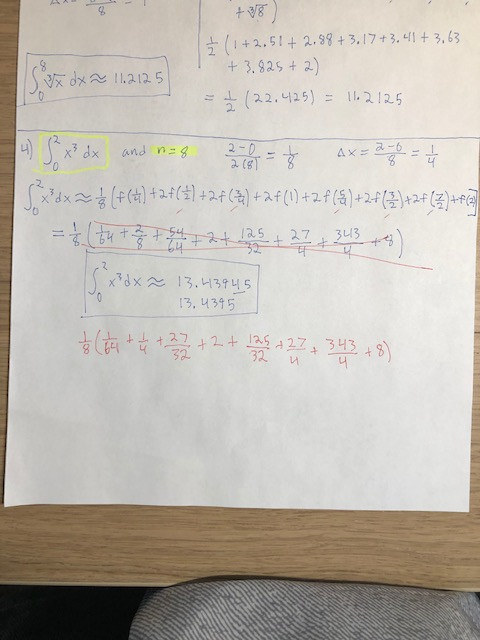 + ∛8)
1/2 (1 + 2.51 + 2.88 + 3.17 + 3.41 + 3.63
+ 3.825 + 2)
∫₀⁸ ∛x dx ≈ 11.2125
= 1/2 (22.425) = 11.2125
4) ∫₀² x³ dx and n = 8 (2-0)/2(8) = 1/8 Δx = (2-0)/8 = 1/4
∫₀² x³ dx ≈ 1/8 (f(1/4) + 2f(1/2) + 2f(3/4) + 2f(1) + 2f(5/4) + 2f(3/2) + 2f(7/2) + f(2)]
= 1/8 (1/64 + 2/8 + 54/64 + 2 + 125/32 + 27/4 + 343/4 + 8)
∫₀² x³ dx ≈ 13.43945
13.4395
1/8 (1/64 + 1/4 + 27/32 + 2 + 125/32 + 27/4 + 343/4 + 8)